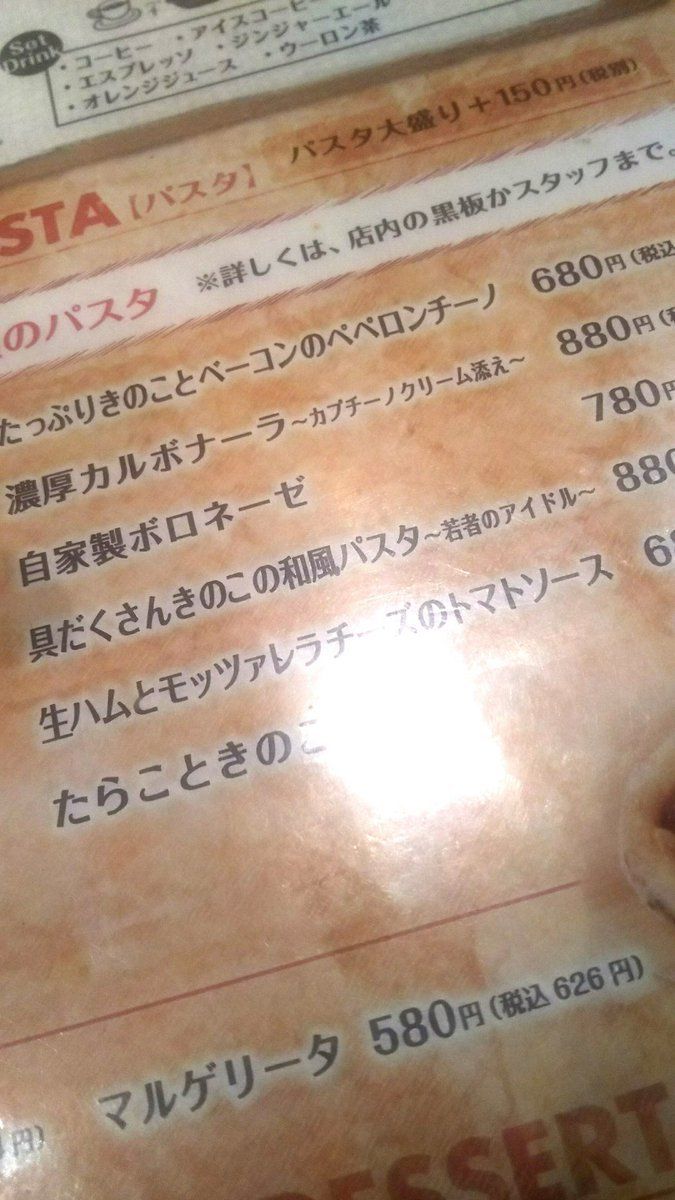 Set Drink
・コーヒー ・アイスコーヒー
・エスプレッソ ・ジンジャーエール
・オレンジジュース ・ウーロン茶
STA【パスタ】 パスタ大盛り+150円(税別)
のパスタ ※詳しくは、店内の黒板かスタッフまで。
たっぷりきのことベーコンのペペロンチーノ 680円(税込
濃厚カルボナーラ~カプチーノクリーム添え~ 880円(税
自家製ボロネーゼ 780円
具だくさんきのこの和風パスタ~若者のアイドル~ 880
生ハムとモッツァレラチーズのトマトソース 6
たらこときのこ
マルゲリータ 580円(税込626円)
円)
DESSERT